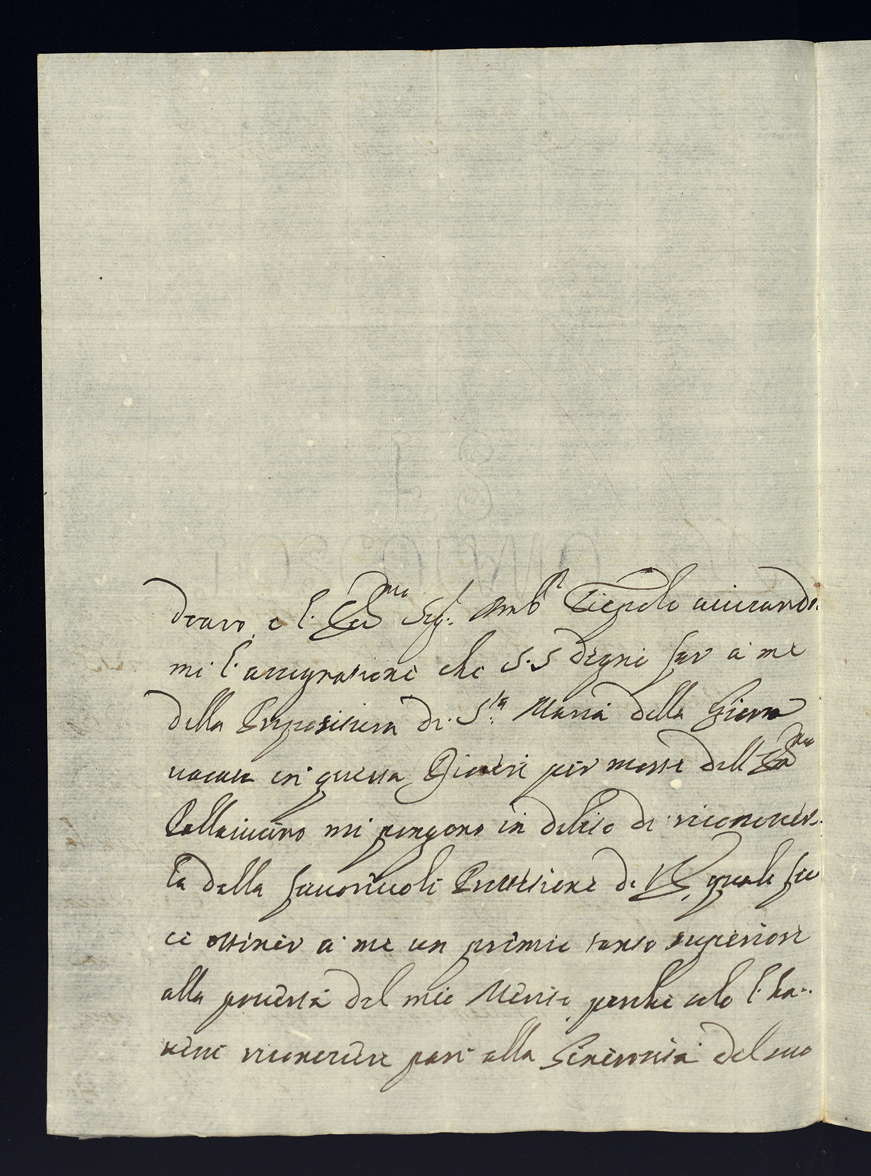 deavo, e l'Ecc.mo Sig.r Amb.r Tiepolo avisando
mi l'assignatione che S. S. degnò far à me
della Prepositura di S.ta Maria della
vacata in questa Diocesi per morte dell'Em.mo
Pallavicino mi pongono in debito di riconoscer
la dalla favorevole Protetione di VS, quale fe
ce ottener à me un premio tanto superiore
alla povertà del mio Merito, perche solo l'ha
vesse riconoscere pari alla Generosità del suo